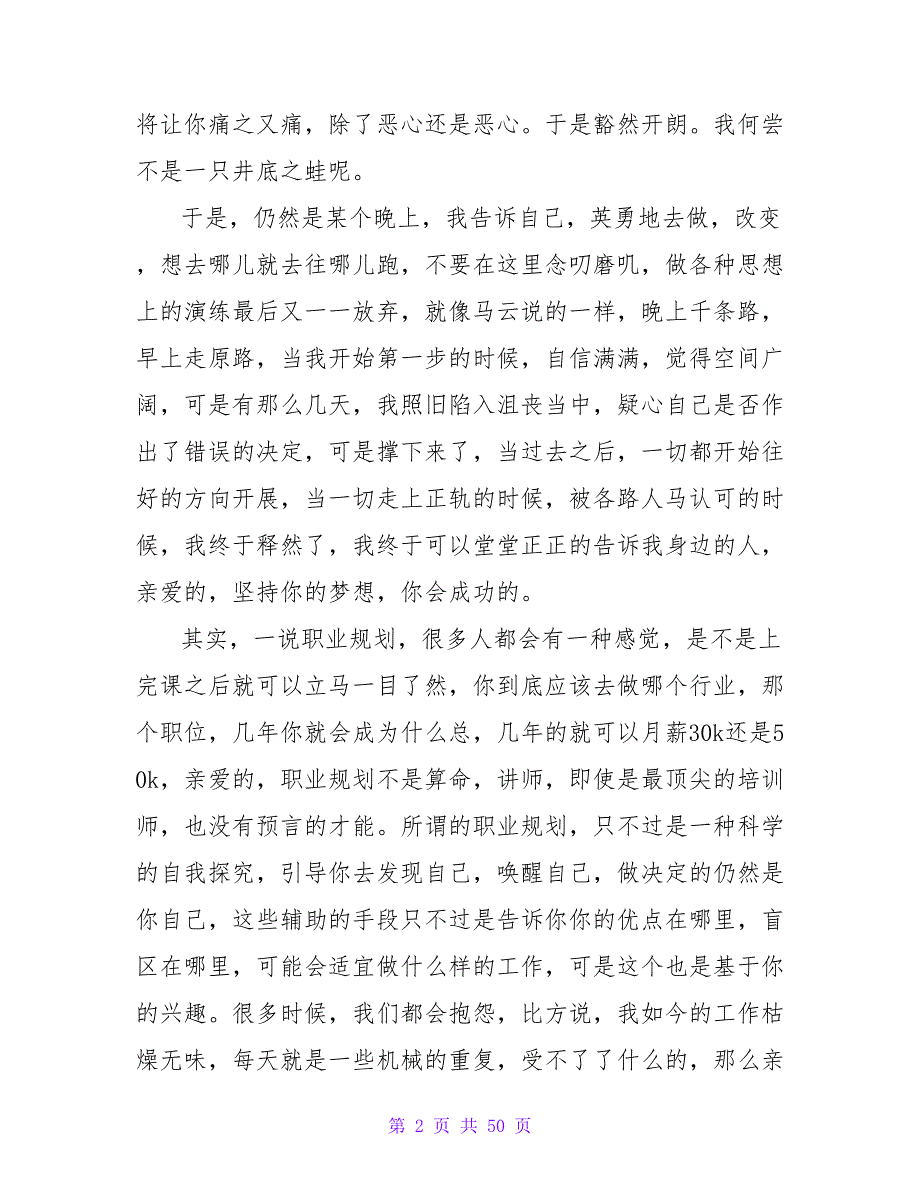 将让你痛之又痛，除了恶心还是恶心。于是豁然开朗。我何尝
不是一只井底之蛙呢。
于是，仍然是某个晚上，我告诉自己，英勇地去做，改变
，想去哪儿就去往哪儿跑，不要在这里念叨磨叽，做各种思想
上的演练最后又一一放弃，就像马云说的一样，晚上千条路，
早上走原路，当我开始第一步的时候，自信满满，觉得空间广
阔，可是有那么几天，我照旧陷入沮丧当中，疑心自己是否作
出了错误的决定，可是撑下来了，当过去之后，一切都开始往
好的方向开展，当一切走上正轨的时候，被各路人马认可的时
候，我终于释然了，我终于可以堂堂正正的告诉我身边的人，
亲爱的，坚持你的梦想，你会成功的。
其实，一说职业规划，很多人都会有一种感觉，是不是上
完课之后就可以立马一目了然，你到底应该去做哪个行业，那
个职位，几年你就会成为什么总，几年的就可以月薪30k还是5
0k，亲爱的，职业规划不是算命，讲师，即使是最顶尖的培训
师，也没有预言的才能。所谓的职业规划，只不过是一种科学
的自我探究，引导你去发现自己，唤醒自己，做决定的仍然是
你自己，这些辅助的手段只不过是告诉你你的优点在哪里，盲
区在哪里，可能会适宜做什么样的工作，可是这个也是基于你
的兴趣。很多时候，我们都会抱怨，比方说，我如今的工作枯
燥无味，每天就是一些机械的重复，受不了了什么的，那么亲
第 2 页 共 50 页